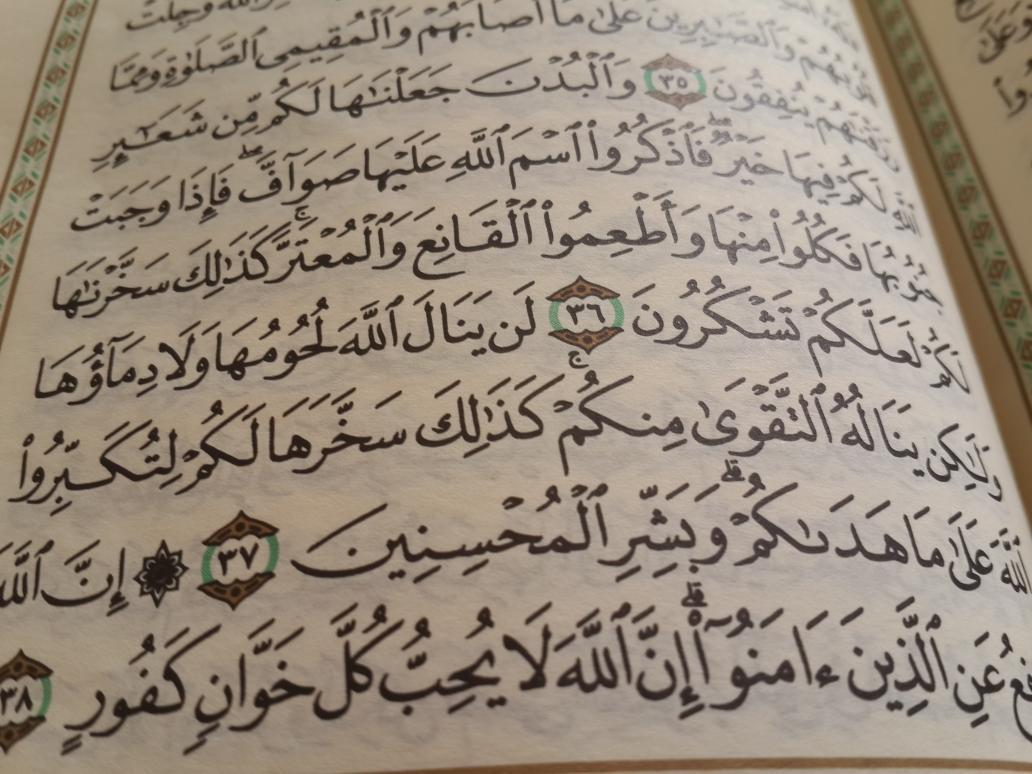 وَجِلَتْ
وَٱلصَّٰبِرِينَ عَلَىٰ مَآ أَصَابَهُمْ وَٱلْمُقِيمِى ٱلصَّلَوٰةِ وَمِمَّا
رَزَقْنَٰهُمْ يُنفِقُونَ ٣٥ وَٱلْبُدْنَ جَعَلْنَٰهَا لَكُم مِّن شَعَٰٓئِرِ
ٱللَّهِ لَكُمْ فِيهَا خَيْرٌ ۖ فَٱذْكُرُوا۟ ٱسْمَ ٱللَّهِ عَلَيْهَا صَوَآفَّ ۖ فَإِذَا وَجَبَتْ
جُنُوبُهَا فَكُلُوا۟ مِنْهَا وَأَطْعِمُوا۟ ٱلْقَانِعَ وَٱلْمُعْتَرَّ ۚ كَذَٰلِكَ سَخَّرْنَٰهَا
لَكُمْ لَعَلَّكُمْ تَشْكُرُونَ ٣٦ لَن يَنَالَ ٱللَّهَ لُحُومُهَا وَلَا دِمَآؤُهَا
وَلَٰكِن يَنَالُهُ ٱلتَّقْوَىٰ مِنكُمْ ۚ كَذَٰلِكَ سَخَّرَهَا لَكُمْ لِتُكَبِّرُوا۟
ٱللَّهَ عَلَىٰ مَا هَدَىٰكُمْ ۗ وَبَشِّرِ ٱلْمُحْسِنِينَ ٣٧ ۞ إِنَّ ٱللَّهَ
عَنِ ٱلَّذِينَ ءَامَنُوٓا۟ ۗ إِنَّ ٱللَّهَ لَا يُحِبُّ كُلَّ خَوَّانٍ كَفُورٍ ٣٨